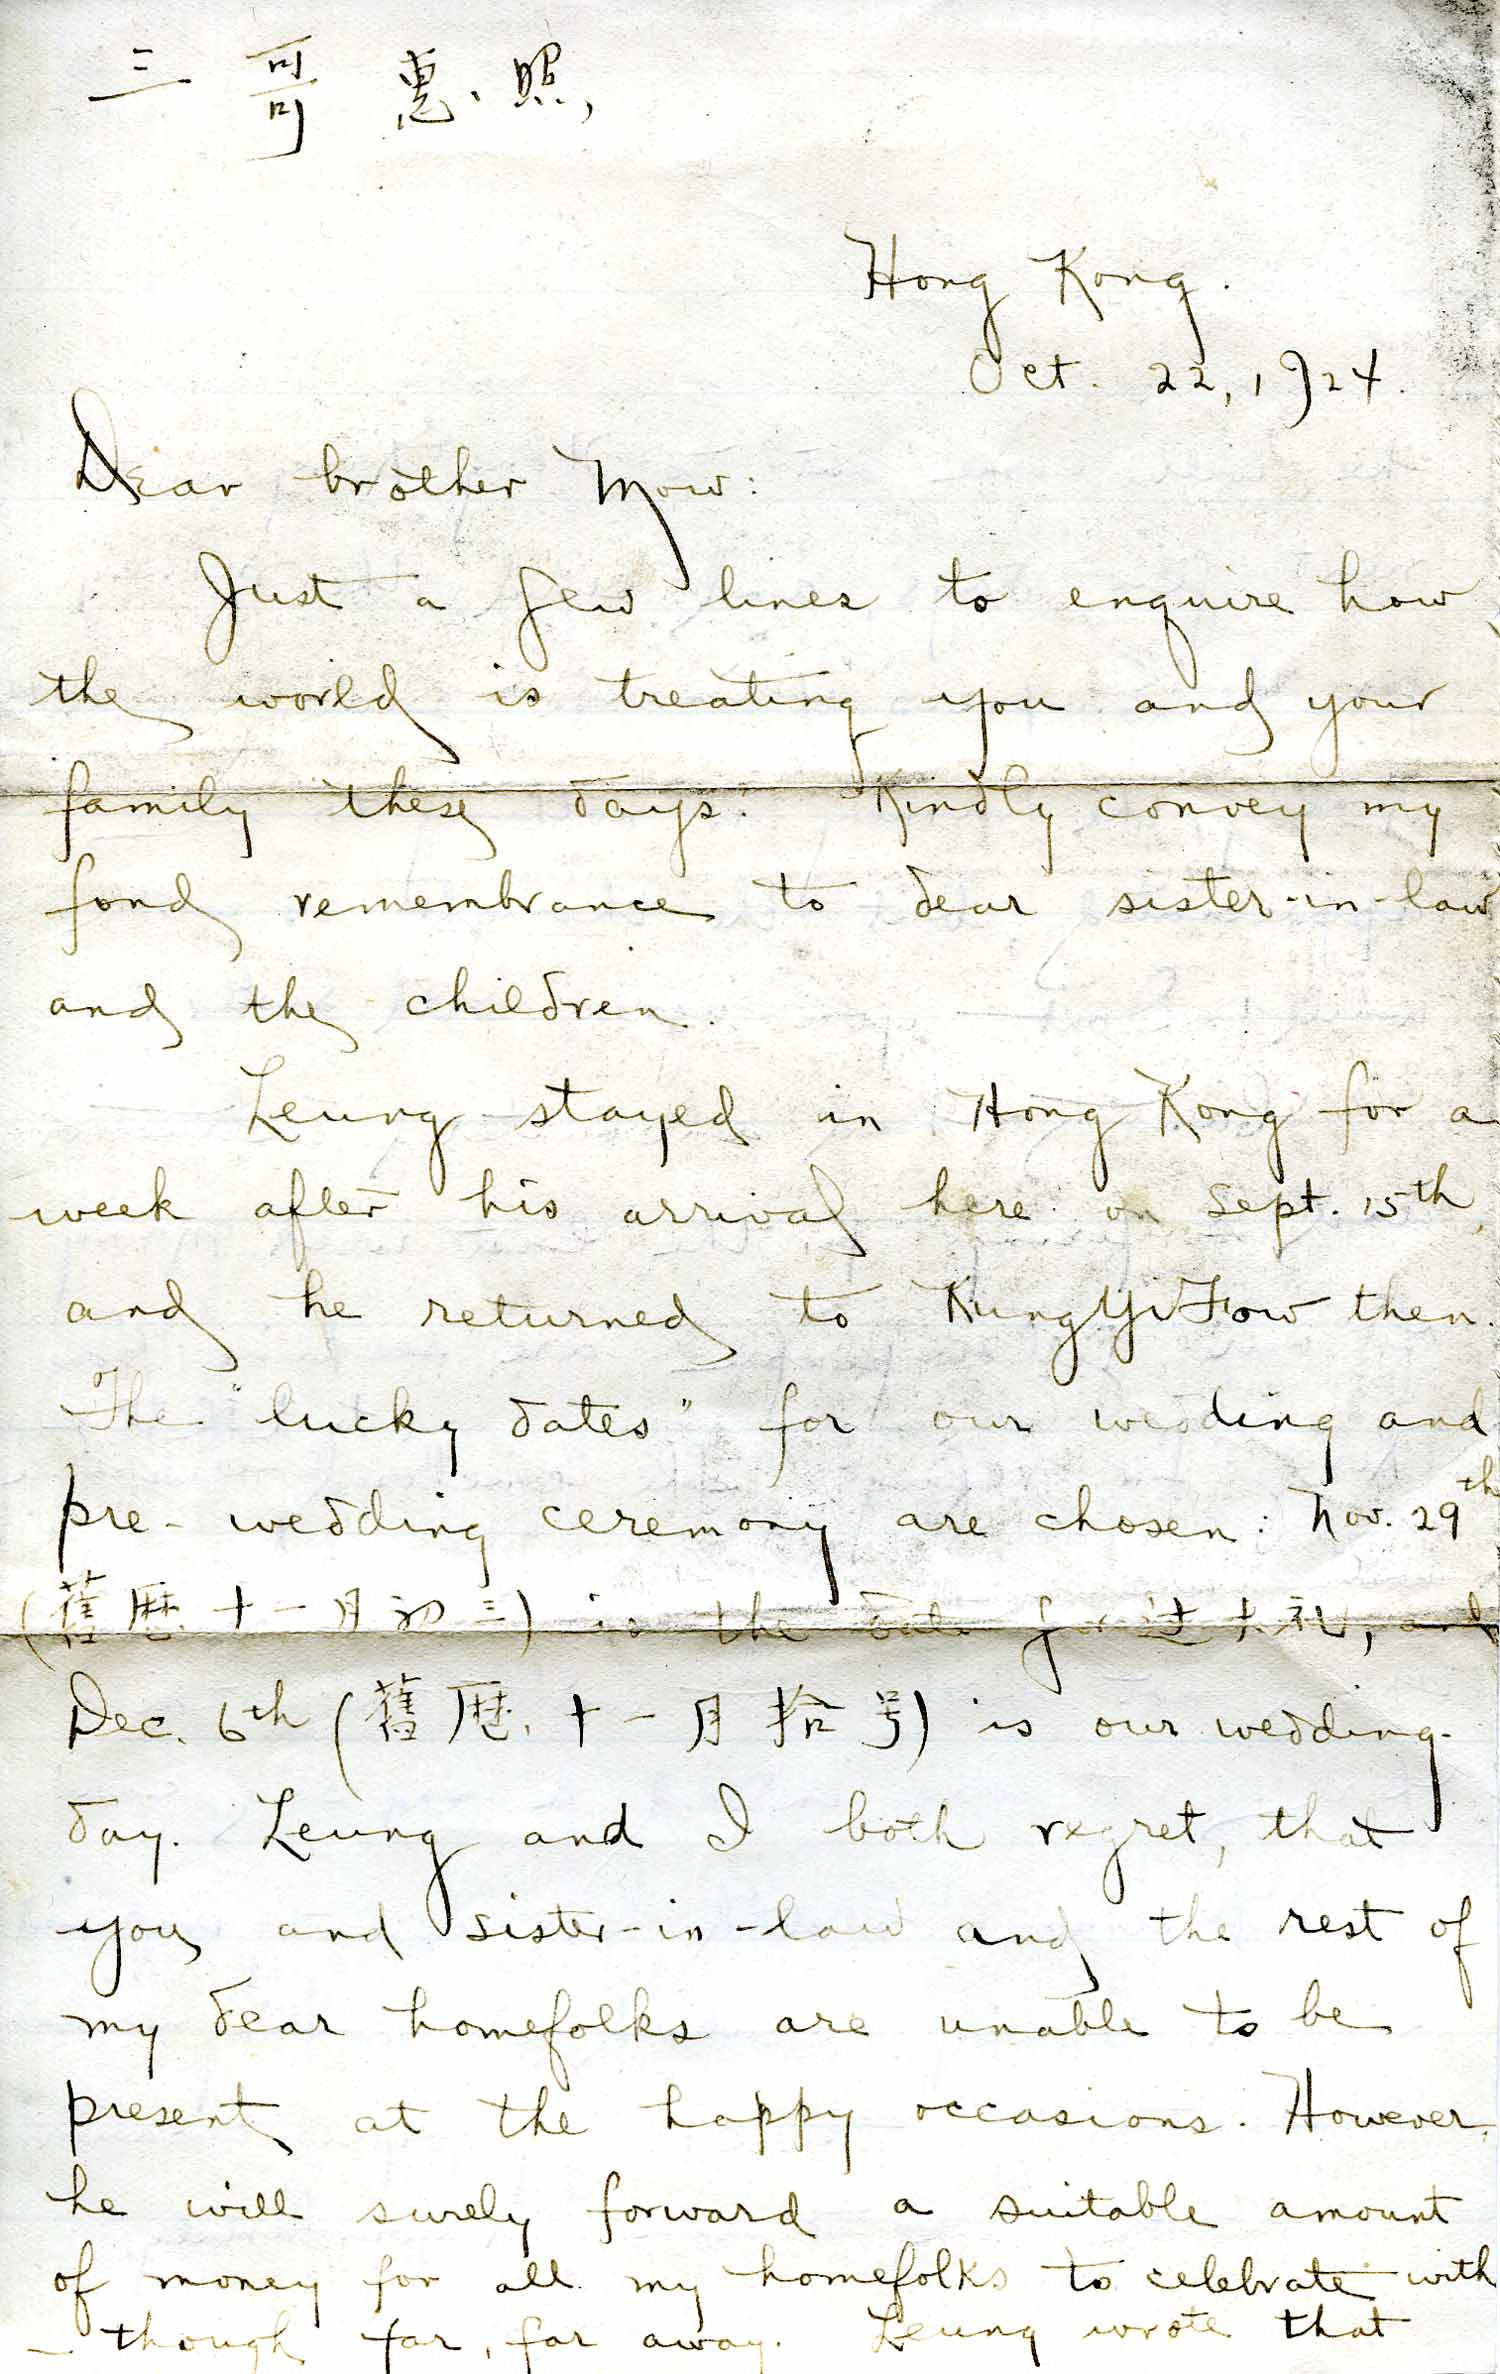 三哥惠照,
Hong Kong.
Oct. 22, 1924.
Dear brother Mow:
Just a few lines to enquire how
the world is treating you and your
family these days. Kindly convey my
fond remembrance to dear sister-in-law
and the children.
Leung stayed in Hong Kong for a
week after his arrival here on Sept. 15th,
and he returned to Kung Yi Fow then.
The "lucky dates" for our wedding and
pre-wedding ceremony are chosen: Nov. 29th
(舊歷十一月初三) is the date for 过大礼, and
Dec. 6th (舊歷十一月拾号) is our wedding-
day. Leung and I both regret, that
you and sister-in-law and the rest of
my dear homefolks are unable to be
present at the happy occasions. However,
he will surely forward a suitable amount
of money for all my homefolks to celebrate with
- though far, far away. Leung wrote that